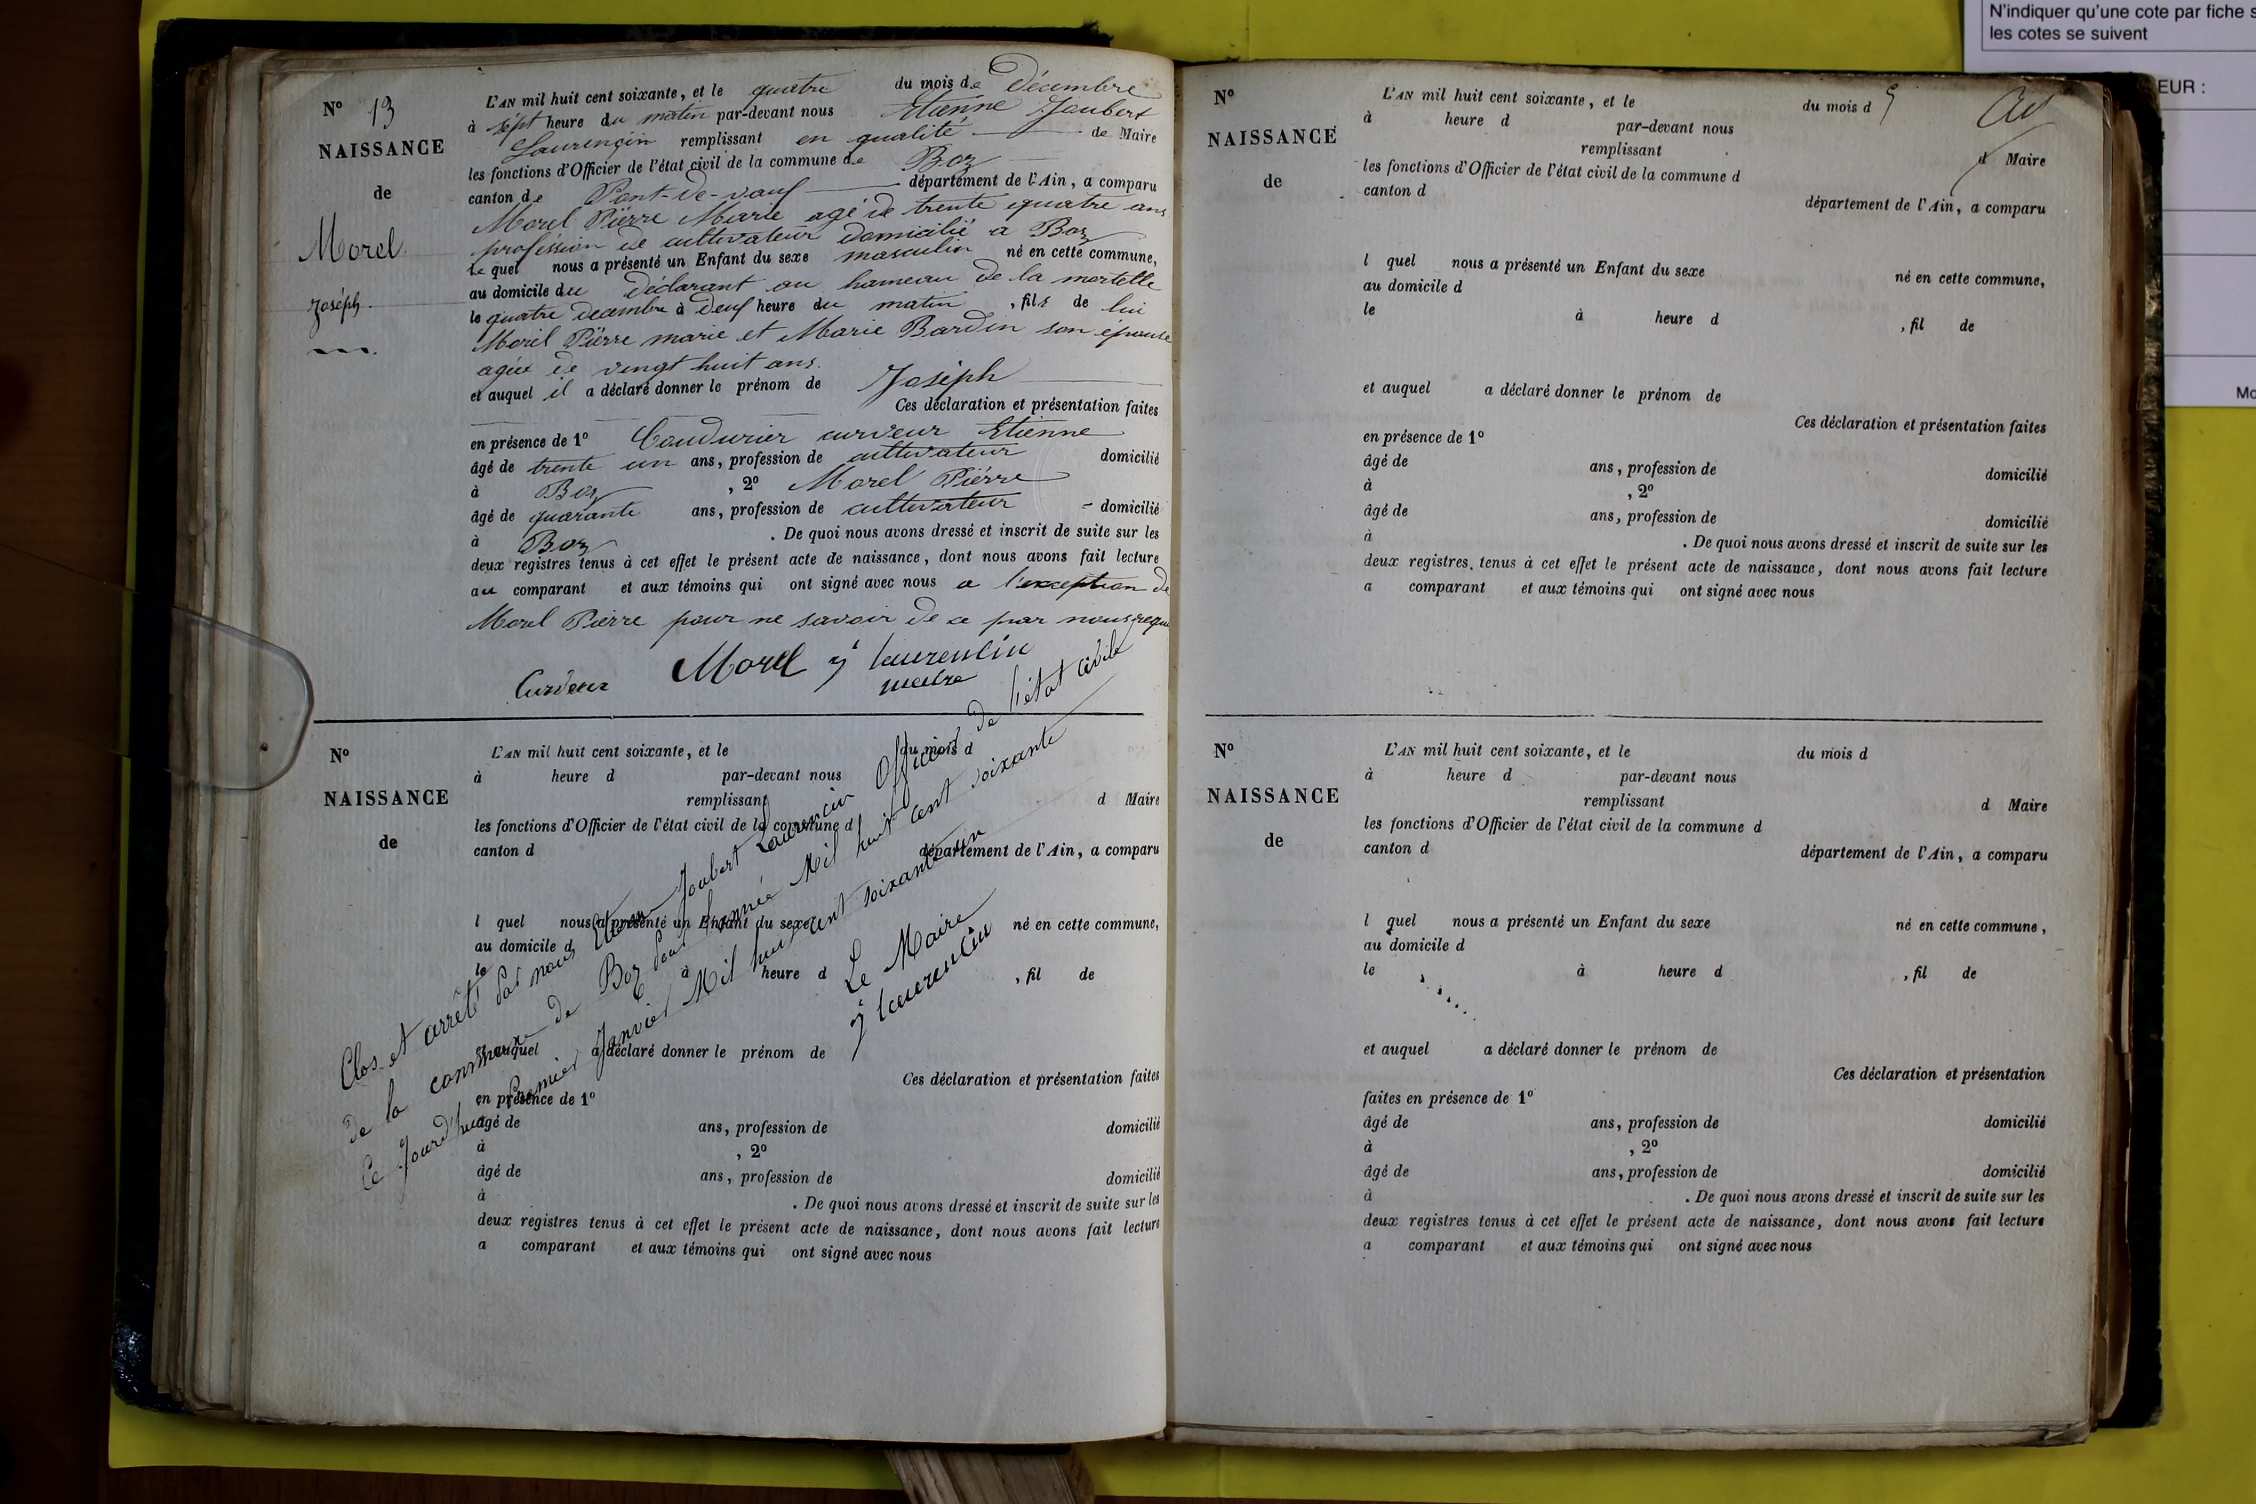 N'indiquer qu'une cote par fiche s
les cotes se suivent
EUR :
Mo
N° 13
NAISSANCE
de
Morel
Joséph
L'AN mil huit cent soixante, et le quatre du mois de Décembre
à sépt heure du matin par-devant nous Etienne Joubert
Laurençin remplissant en qualité de Maire
les fonctions d'Officier de l'état civil de la commune de Boz
canton de Pont-de-vaux département de l'Ain, a comparu
Morel Piërre Marie agé de trente quatre ans
proféssion de cultivateur domicilié a Boz
Le quel nous a présenté un Enfant du sexe masculin né en cette commune,
au domicile du déclarant au hameau de la
le quatre decembre à Deux heure du matin , fils de lui
Morel Piërre marie et Marie Bardin son épouse
agée de vingt huit ans.
et auquel il a déclaré donner le prénom de Joséph
Ces déclaration et présentation faites
en présence de 1° Coudurier curveur Etienne
âgé de trente un ans, profession de cultivateur domicilié
à Boz , 2° Morel Piérre
âgé de quarante ans, profession de cultivateur domicilié
à Boz . De quoi nous avons dressé et inscrit de suite sur les
deux registres tenus à cet effet le présent acte de naissance, dont nous avons fait lecture
au comparant et aux témoins qui ont signé avec nous a l'exception de
Morel Piérre pour ne savoir de ce par nous requi
Curveur Morel J laurencin
maire
N°
NAISSANCE
de
L'AN mil huit cent soixante, et le du mois d
à heure d par-devant nous
remplissant d Maire
les fonctions d'Officier de l'état civil de la commune d
canton d département de l'Ain, a comparu
l quel nous a présenté un Enfant du sexe né en cette commune,
au domicile d
le à heure d , fil de
et auquel a déclaré donner le prénom de
Ces déclaration et présentation faites
en présence de 1°
âgé de ans, profession de domicilié
à , 2°
âgé de ans, profession de domicilié
à . De quoi nous avons dressé et inscrit de suite sur les
deux registres tenus à cet effet le présent acte de naissance, dont nous avons fait lecture
a comparant et aux témoins qui ont signé avec nous
Clos et arrêté par nous Etienne Joubert Laurencin Officier de l'état civile
de la commune de Boz pour l'année Mil huit cent soixante
Ce Jourd'hui Premier Janvier Mil huit cent soixante un
Le Maire
J laurencin
N°
NAISSANCE
de
L'AN mil huit cent soixante, et le du mois d
à heure d par-devant nous
remplissant d Maire
les fonctions d'Officier de l'état civil de la commune d
canton d département de l'Ain, a comparu
l quel nous a présenté un Enfant du sexe né en cette commune,
au domicile d
le à heure d , fil de
et auquel a déclaré donner le prénom de
Ces déclaration et présentation faites
en présence de 1°
âgé de ans, profession de domicilié
à , 2°
âgé de ans, profession de domicilié
à . De quoi nous avons dressé et inscrit de suite sur les
deux registres tenus à cet effet le présent acte de naissance, dont nous avons fait lecture
a comparant et aux témoins qui ont signé avec nous
N°
NAISSANCE
de
L'AN mil huit cent soixante, et le du mois d
à heure d par-devant nous
remplissant d Maire
les fonctions d'Officier de l'état civil de la commune d
canton d département de l'Ain, a comparu
l quel nous a présenté un Enfant du sexe né en cette commune,
au domicile d
le à heure d , fil de
et auquel a déclaré donner le prénom de
Ces déclaration et présentation
faites en présence de 1°
âgé de ans, profession de domicilié
à , 2°
âgé de ans, profession de domicilié
à . De quoi nous avons dressé et inscrit de suite sur les
deux registres tenus à cet effet le présent acte de naissance, dont nous avons fait lecture
a comparant et aux témoins qui ont signé avec nous